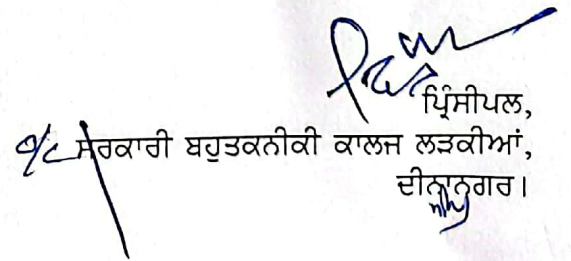 ਪ੍ਰਿੰਸੀਪਲ,
ਸਰਕਾਰੀ ਬਹੁਤਕਨੀਕੀ ਕਾਲਜ ਲੜਕੀਆਂ,
ਦੀਨਾਨਗਰ।